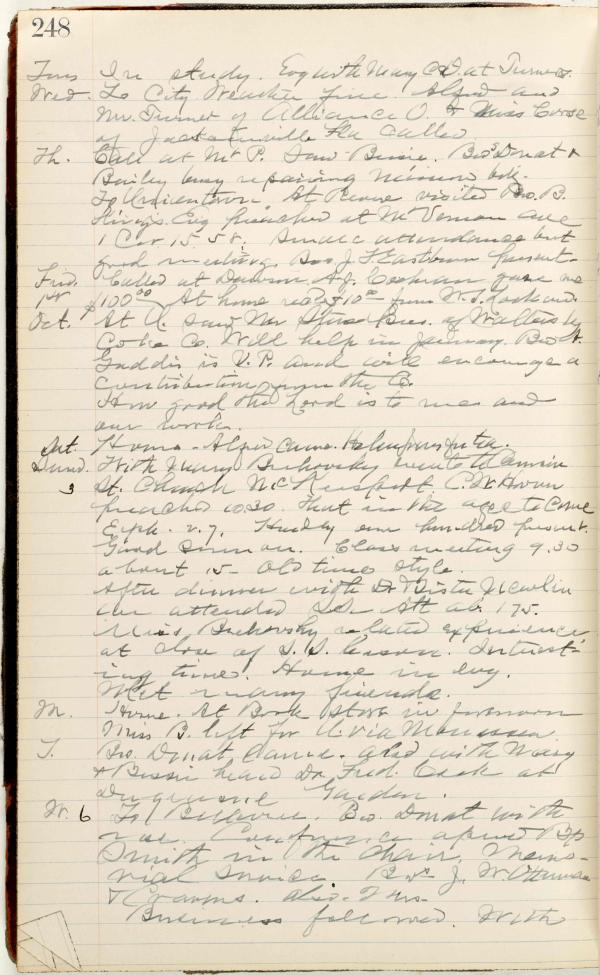 248
Tues In study. Evg with Mary C D. at Turners.
Wed. To City Weather fine. Alfred and
Mr. Turner of Alliance O. & Miss
of Jacksonville Fla called
Th. Call at Mt P. Saw Bessie. Bro Donat &
Bailey busy repairing mission
To Uniontown. At Revere visited Bro. B.
King's. Evg preached at Mt Vernon ave
1 Cor 15.58. Small attendance but
good meeting. Bro J F Eastburn present.
Frid. Called at Dawson A.J. Cochran gave me
1st $100.00 At home recd $10.00 from W. S. Lockard
Oct. At U. saw Mr Pres. of
Coke Co. Will help in January. Bro
Gaddis is V. P. and will encourage a
contribution from the Co.
How good the Lord is to me and
our work.
Sat. Home. Alfred came. Helen for tea.
Sund. With Mary Brehovsky went to
3 St. Church McKeesport C. W. Hoover
preached 10.30. That in the ages to come
Eph. 2.7. Hardly one hundred present.
Good sermon. Class meeting 9.30
about 15 - Old time style.
After dinner with Dr & Sister Newlin
we attended S.S. Att ab. 175.
Miss Brehovsky related experience
at close of S. S. lesson. Interest-
ing time. Home in evg.
Met many friends.
M. Home. At Book Store in forenoon
Miss B. left for U. via Monessen.
T. Bro. Donat came. also with Mary
& Bessie heard Dr. Fred. Cook at
Duquesne Garden.
W. 6 To Bellevue. Bro. Donat with
me. Conference opened Bp
Smith in the chair. Memo-
rial service Bros J. W
& Cravens. also. Mrs.
Business followed. With